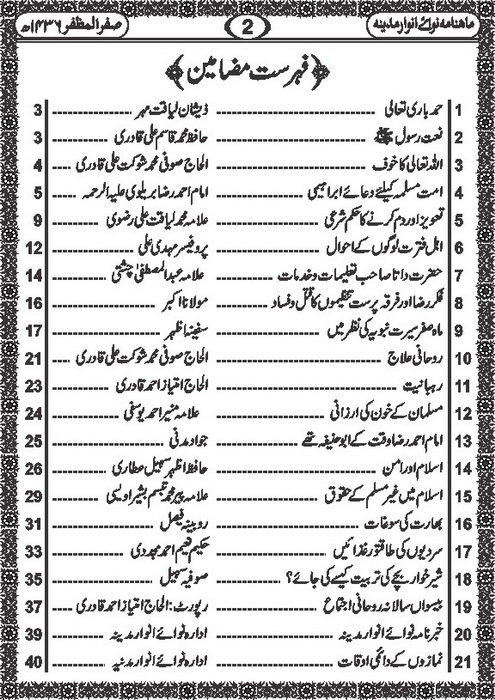 ماہنامہ نوائے انوار مدینہ 2 صفر المظفر ۱۴۳۶ھ
﴿فہرست مضامین﴾
1 حمد باری تعالی ذیشان لیاقت مہر 3
2 نعت رسول ﷺ حافظ محمد قاسم علی قادری 3
3 اللہ تعالی کا خوف الحاج صوفی محمد شوکت علی قادری 4
4 امت مسلمہ کیلئے دعائے ابراہیمی امام احمد رضا بریلوی علیہ الرحمہ 5
5 تعویز اور دم کرنے کا حکم شرعی علامہ محمد لیاقت علی رضوی 9
6 اہل فترت لوگوں کے احوال پروفیسر مہدی علی 12
7 حضرت داتا صاحب تعلیمات و خدمات علامہ عبد المصطفیٰ چشتی 14
8 فکر رضا اور فرقہ پرست تنظیموں کا قتل و فساد مولانا اکبر 16
9 ماہ صفر سیرت نبویہ کی نظر میں سفینہ اظہر 17
10 روحانی علاج الحاج صوفی محمد شوکت علی قادری 21
11 رہبانیت الحاج امتیاز احمد قادری 23
12 مسلمان کے خون کی ارزانی علامہ منیر احمد یوسفی 24
13 امام احمد رضا وقت کے ابو حنیفہ تھے جواد مدنی 25
14 اسلام اور امن حافظ اظہر سہیل عطاری 26
15 اسلام میں غیر مسلم کے حقوق علامہ پیر محمد تبسم بشیر اویسی 29
16 بھارت کی سوغات روبینہ فیصل 31
17 سردیوں کی طاقتور غذائیں حکیم نعیم احمد مجددی 33
18 شیر خوار بچے کی تربیت کیسے کی جائے؟ صوفیہ سہیل 35
19 بیسواں سالانہ روحانی اجتماع رپورٹ: الحاج امتیاز احمد قادری 37
20 خبر نامہ نوائے انوار مدینہ ادارہ نوائے انوار مدینہ 39
21 نمازوں کے دائمی اوقات ادارہ نوائے انوار مدنیہ 40